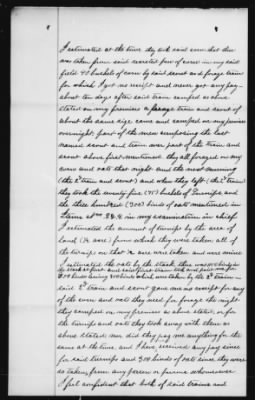 I estimated at the time the said corn that
was taken from said crib of corn in my said
field 40 bushels of corn by said scout as forage train
for which I got no receipt and never got any pay
about ten days after said train camped as above
stated on my premises a forage train and scout of
about the same size came and camped on my premises
overnight, part of the men composing the last
named scout and train were part of the train and
scout above first mentioned they all foraged on my
corn and oats that night and the next morning
(the 2nd train and scout) and when they left (the 2nd train)
they took the seventy five (75) bushels of turnips and
the three hundred (300) binds of oats mentioned in
Items Nos 3 & 4 in my examination in chief
I estimated the amount of turnips by the area of
land (½ acre) from which they were taken all of
the turnips on that ½ acre were taken and were mine
I estimated the oats by the stack, there was
300 binds which was taken by the 2nd train
said 2nd train and scout gave me no receipt for any
of the corn and oats they used for forage the night
they camped on my premises as above stated, or for
the turnips and oats they took away with them as
above stated nor did they pay me anything for the
same at the time and I have received any pay since
for said turnips and 300 binds of oats since they were
so taken from any person or source whomsoever
I feel confident that both of said trains and